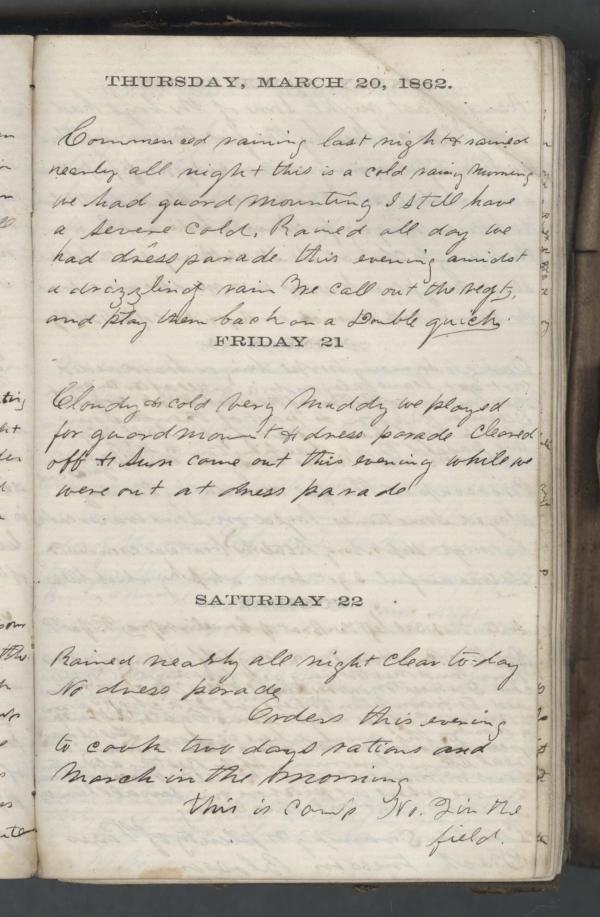 THURSDAY, MARCH 20, 1862.
Commenced raining last night & rained
nearly all night this is a cold rainy morning
we had guard mounting I still have
a severe cold. Rained all day we
had dress parade this evening amidst
a drizzling rain We call out the regts,
and play them back on a Double quick.
FRIDAY 21
Cloudy & cold very Muddy we played
for guard mount & dress parade Cleared
off & Sun come out this evening while we
were out at dress parade
SATURDAY 22
Rained nearly all night clear to-day
No dress parade
Orders this evening
to cook two days rations and
March in the morning
this is camp No. 2 in the
field.